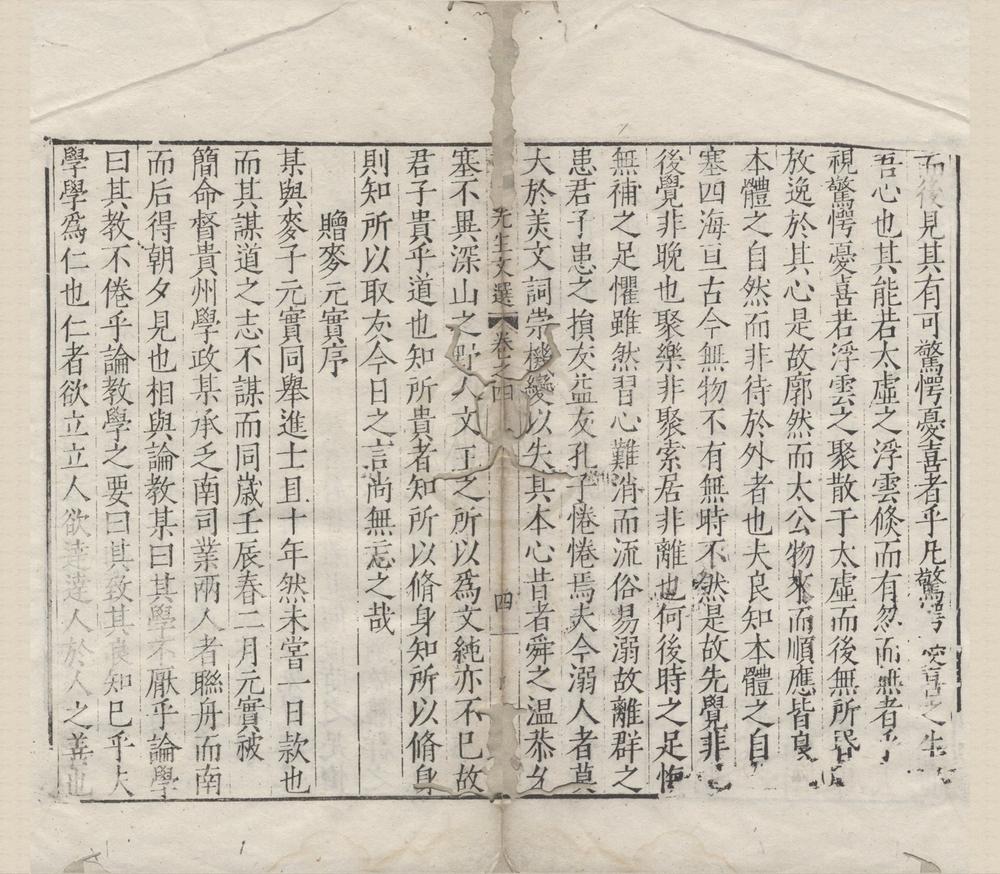 而後見其有可驚愕憂喜者乎凡驚愕憂喜之生
吾心也其能若太虛之浮雲倐而有忽而無者乎
視驚愕憂喜若浮雲之聚散于太虛而後無所
放逸於其心是故廓然而太公物來而順應皆良
本體之自然而非待於外者也夫良知本體之自
塞四海亘古今無物不有無時不然是故先覺非
後覺非晚也聚樂非聚索居非離也何後時之足悔
無補之足懼雖然習心難消而流俗易溺故離群之
患君子患之損友益友孔子惓惓焉夫今溺人者莫
大於美文詞崇機變以失其本心昔者舜之温恭允
先生文選 卷之四 四
塞不異深山之野人文王之所以爲文純亦不已故
君子貴乎道也知所貴者知所以脩身知所以脩身
則知所以取友今日之言尚無忘之哉
贈麥元實序
某與麥子元實同舉進士且十年然未嘗一日款也
而其謀道之志不謀而同歲壬辰春二月元實被
簡命督貴州學政某承乏南司業兩人者聯舟而南
而后得朝夕見也相與論教某曰其學不厭乎論學
曰其教不倦乎論教學之要曰其致其良知已乎夫
學學爲仁也仁者欲立立人欲達達人於人之善也